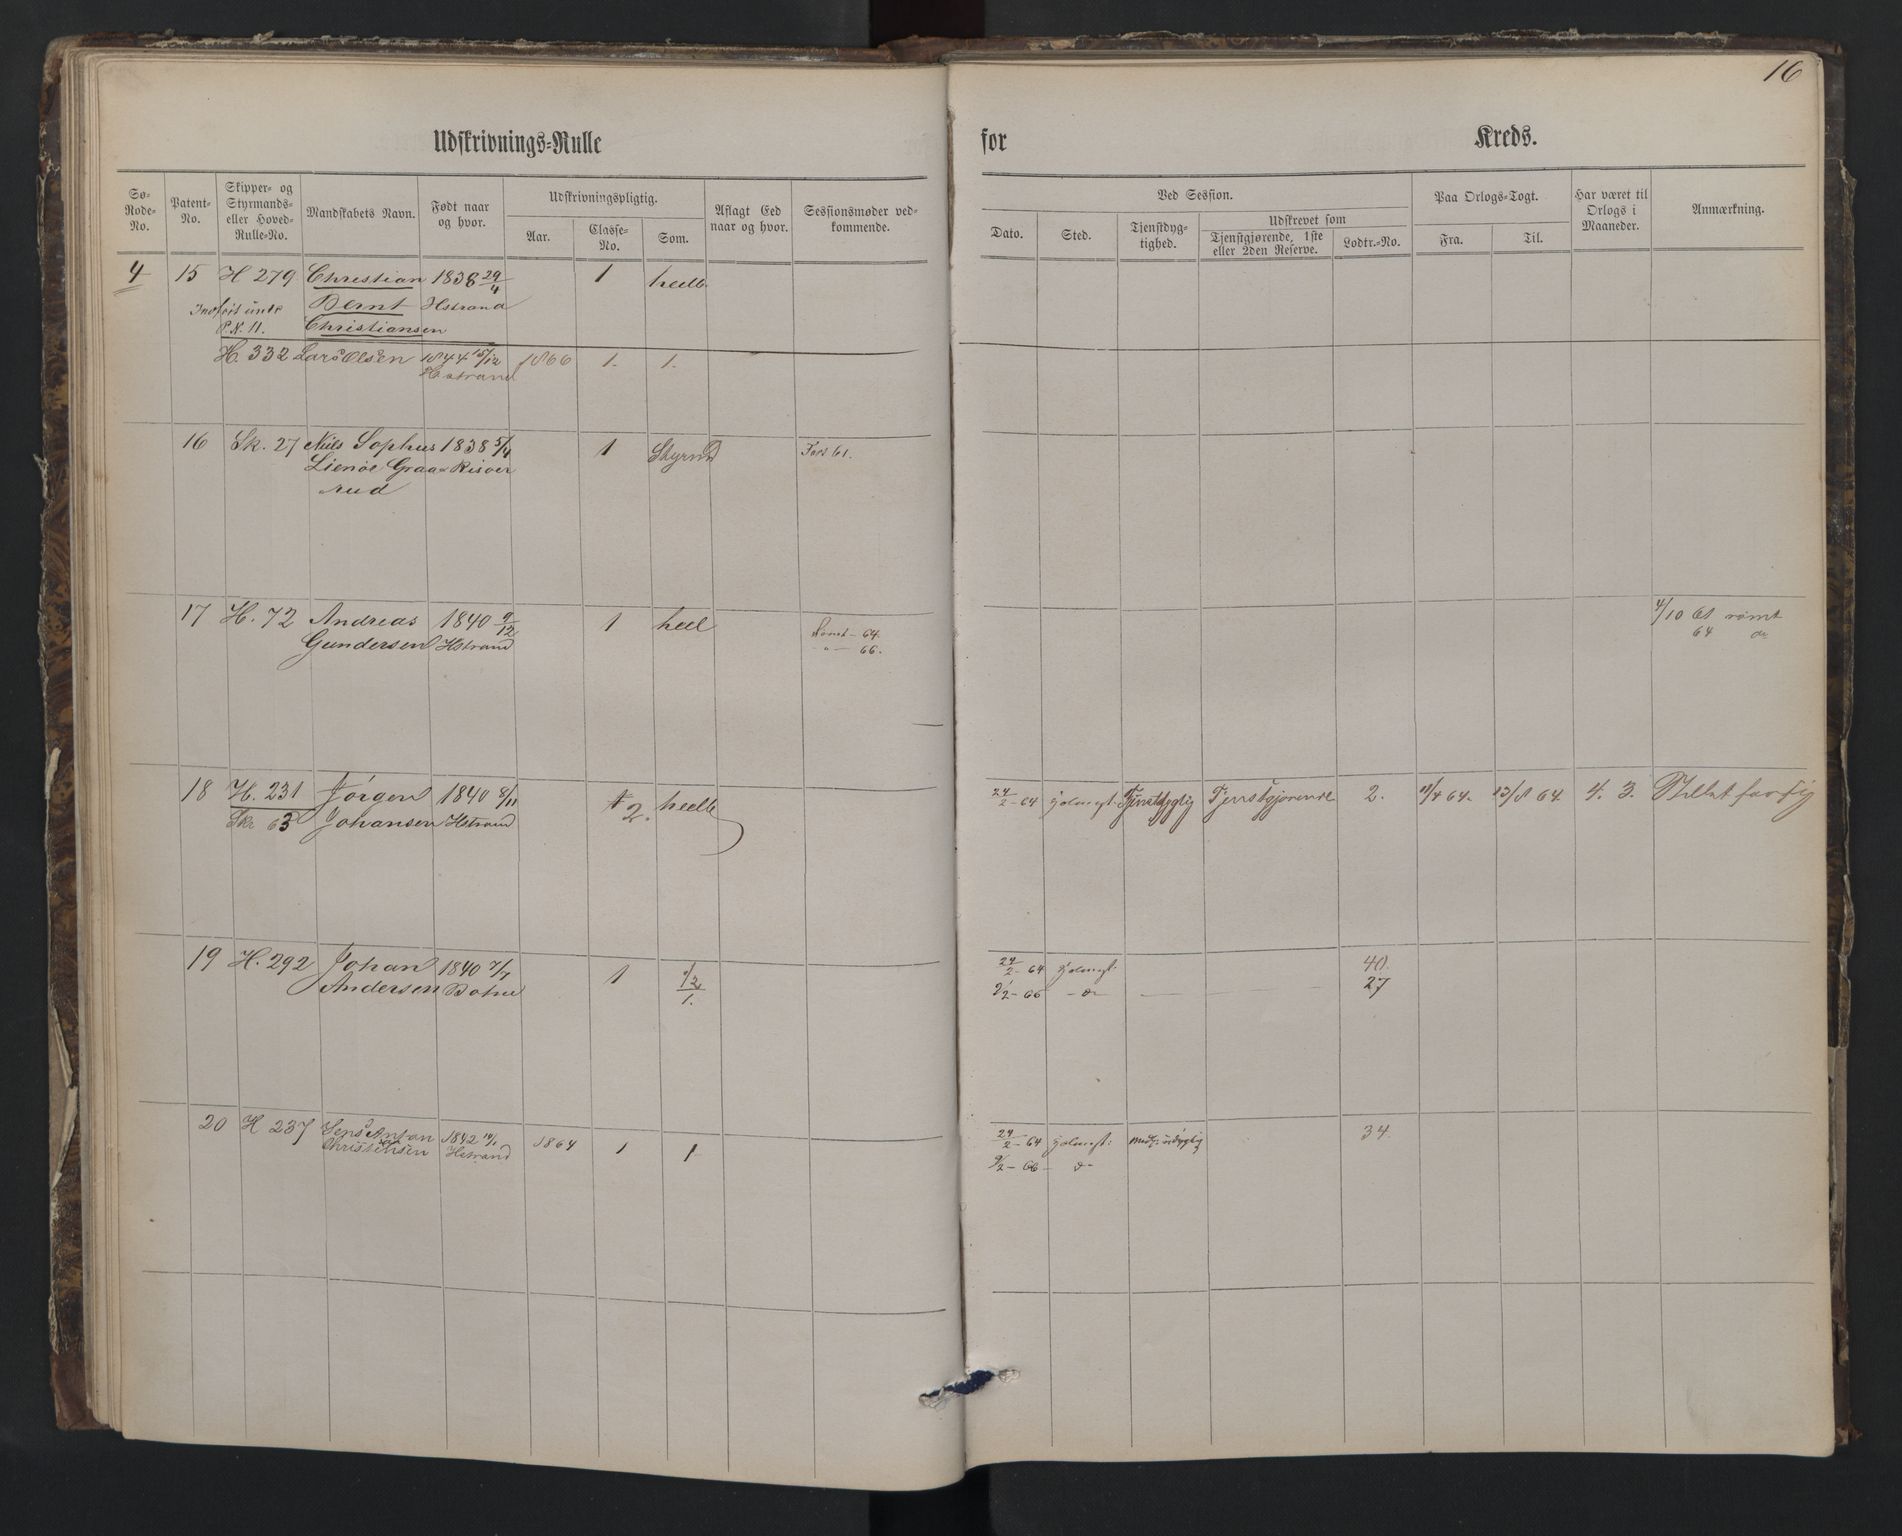 16
Udskrivnings-Rulle for Kreds.
Sø-Rode-No.
Patent-No.
Skipper- og Styrmands- eller Hoved-Rulle-No.
Mandskabets Navn.
Født naar og hvor.
Udskrivningspligtig.
Aar.
Classe-No.
Som.
Aflagt Eed naar og hvor.
Sessionsmøder vedkommende.
Ved Session.
Dato.
Sted.
Tjenstdygtighed.
Udskrevet som
Tjenstgjørende, 1ste eller 2den Reserve.
Lodtr.-No.
Paa Orlogs-Togt.
Fra.
Til.
Har været til Orlogs i Maaneder.
Anmærkning.
4 15 H 279 Christian 1838 29/4 1 heelb
Bernt Hstrand
P.N. 11. Christiansen
H. 332 Lars Olsen 1844 15/12 1866 1. 1.
Hstrand
16 Sk. 27 Niels Sophus 1838 5/4 1 Styrmd
Lienøe Graa- Risøer
rud
17 H. 72 Andreas 1840 9/12 1 heel 4/10 61 rømt
Gundersen Hstrand Rømt - 64. 64 do
- " - 66.
18 H. 231 Jörgen 1840 8/11 1 heelb 24/2 - 64 Holmest: Tjenstdygtig Tjenstgjørende 2. 11/4 64. 23/8 64. 4. 3. Stillet for sig
Skr 63 Johansen Hstrand 2.
19 H. 292 Johan 1840 7/7 1 1/2 24/2 - 64 Holmest: 40.
Andersen Botne 1. 9/2 - 66 - do - 27
20 H 237 Jens Anton 1842 14/1 1864 1 1 24/2 - 64 Holmest: midl: udygtig 34.
Christensen Hstrand 9/2 - 66 - do -